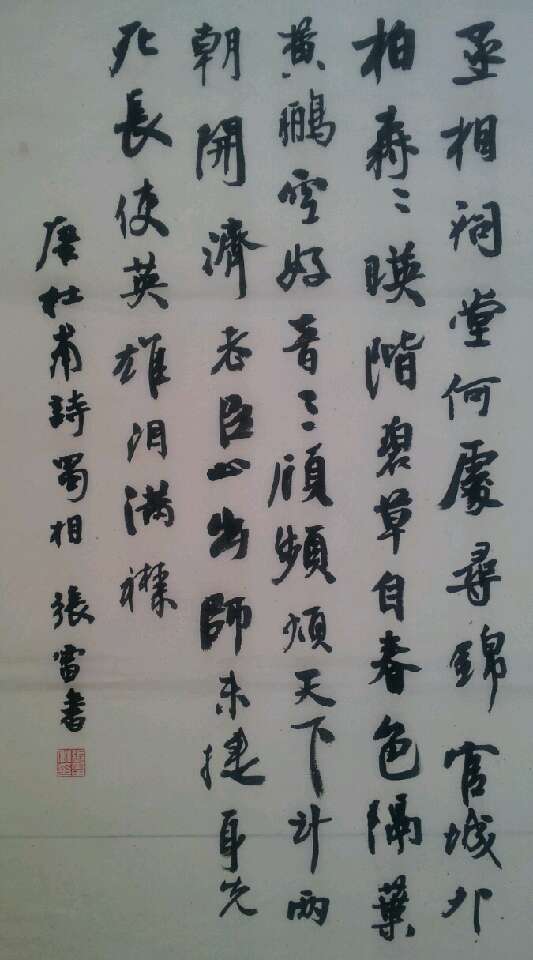 丞相祠堂何處尋錦官城外
柏森〻暎階碧草自春色隔葉
黄鵬空好音三顧頻煩天下計兩
朝開濟老臣心出師未捷身先
死長使英雄泪滿襟
唐杜甫詩蜀相 張雷書